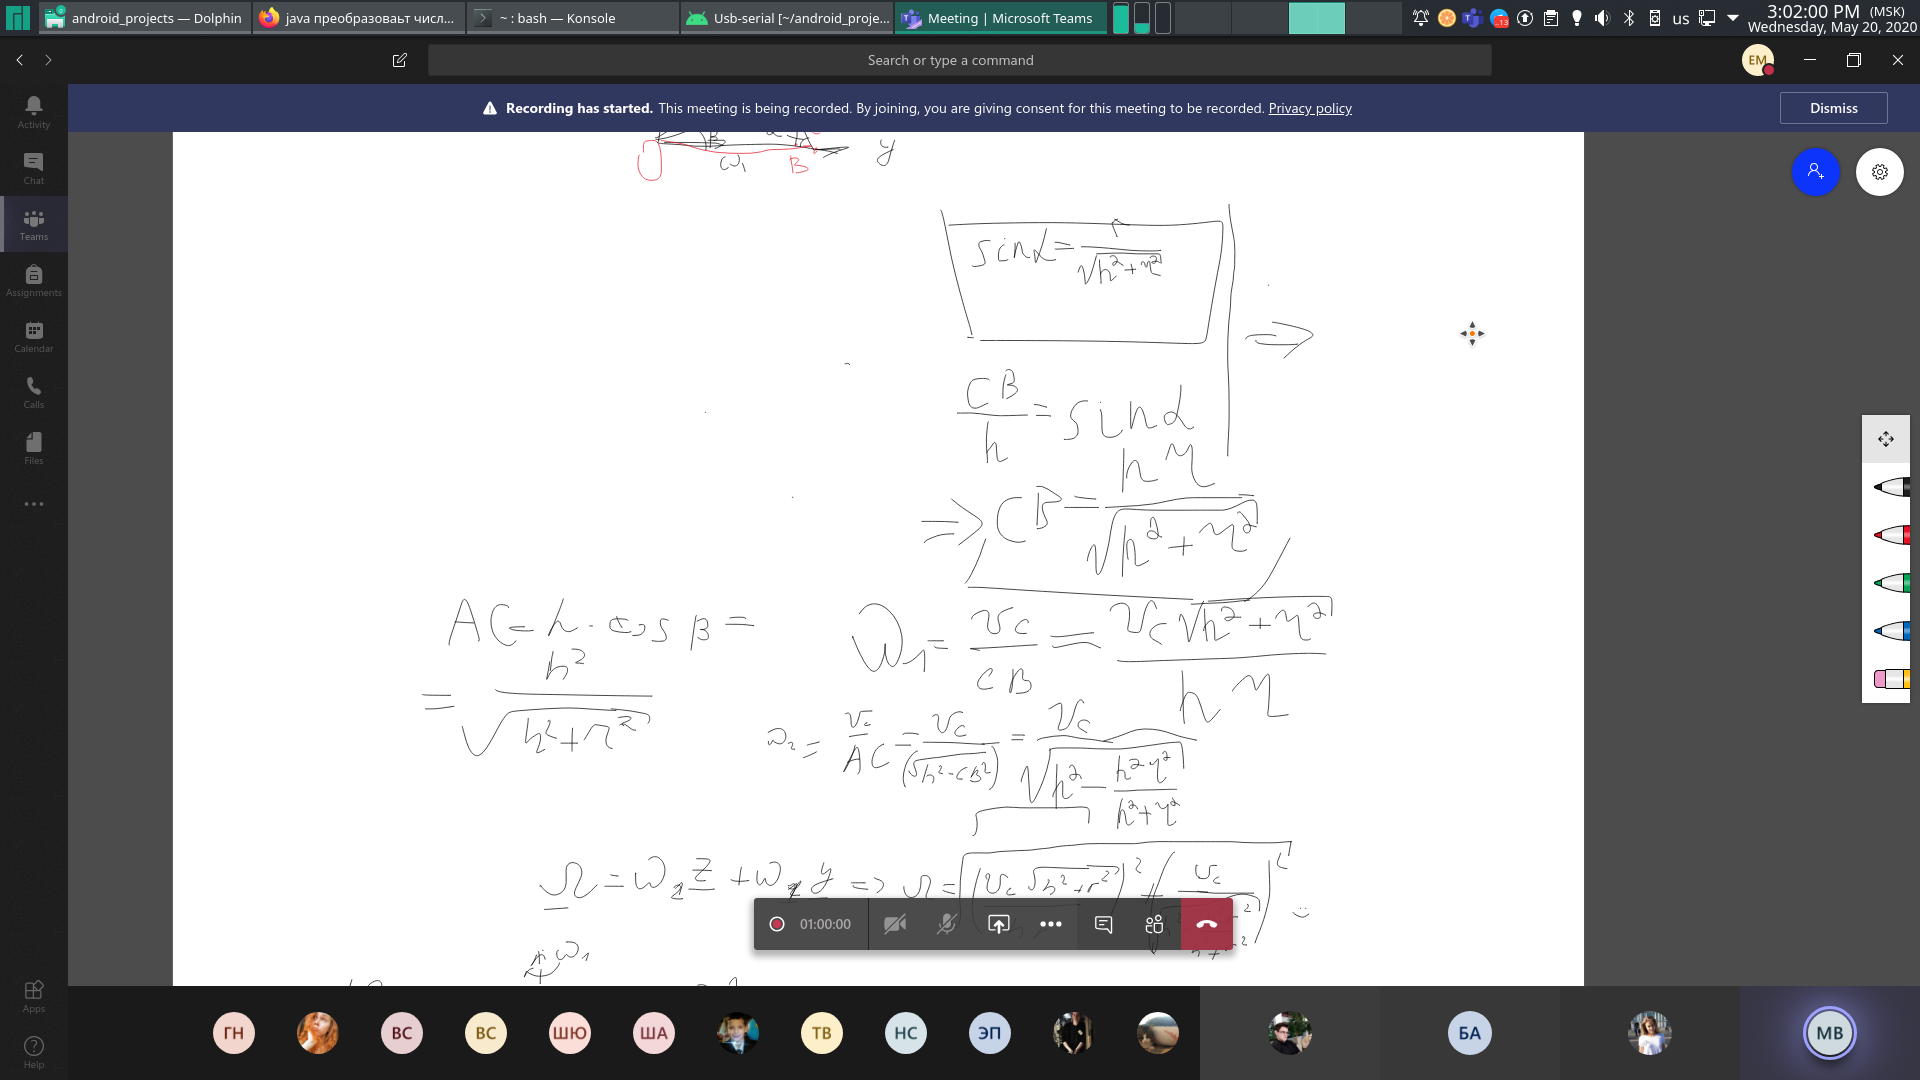 android_projects — Dolphin
java преобразоваьт числ...
~ : bash — Konsole
Usb-serial [~/android_proje...
Meeting | Microsoft Teams
13
us
3:02:00 PM (MSK)
Wednesday, May 20, 2020
Search or type a command
EM
Activity
Chat
Teams
Assignments
Calendar
Calls
Files
Apps
Help
Recording has started. This meeting is being recorded. By joining, you are giving consent for this meeting to be recorded. Privacy policy
Dismiss
ω₁ B y
sinα = r/√(h²+r²)
CB/h = sinα
=> CB = hr/√(h²+r²)
AC = h · cos β =
= h²/√(h²+r²)
ω₁ = v_c/CB = v_c√(h²+r²)/hr
ω₂ = v_c/AC = v_c/(√(h²-CB²)) = v_c/√(h² - h²r²/(h²+r²))
ω₁
01:00:00
ГН
ВС
ВС
ШЮ
ША
ТВ
НС
ЭП
БА
МВ